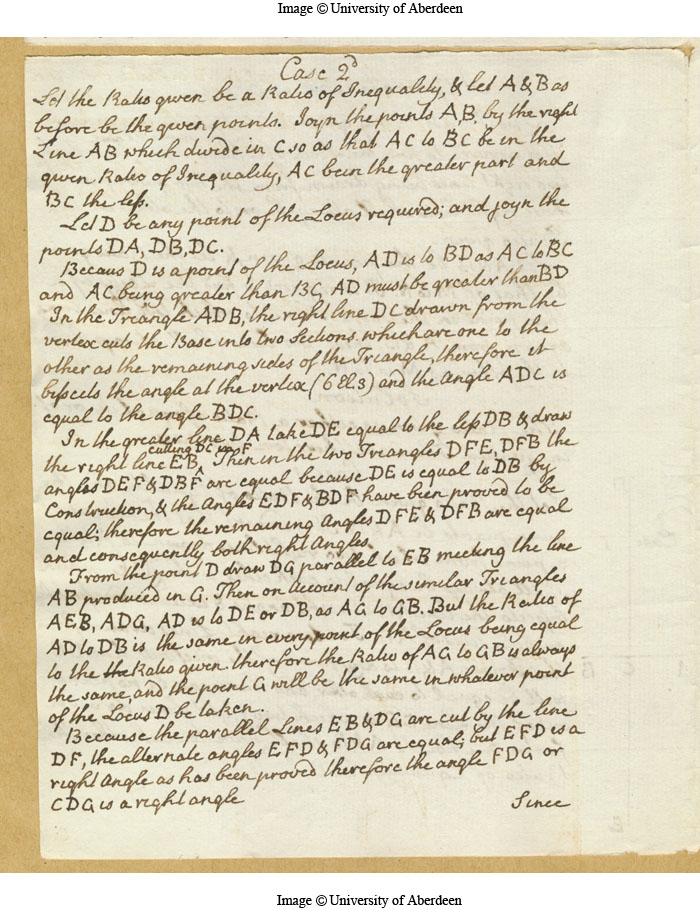 Image © University of Aberdeen
Case 2d
Let the Ratio given be a Ratio of Inequality, & let A & B as
before be the given points. Joyn the points A, B, by the right
Line AB which divide in C so as that AC to BC be in the
given Ratio of Inequality, AC bein the greater part and
BC the less.
Let D be any point of the Locus required; and joyn the
points DA, DB, DC.
Becaus D is a point of the Locus, AD is to BD as AC to BC
and AC being greater than BC, AD must be greater than BD
In the Triangle ADB, the right line DC drawn from the
vertex cuts the Base into two Sections which are one to the
other as the remaining sides of the Triangle, therefore it
bissects the angle at the vertex (6 El. 3) and the Angle ADC is
equal to the angle BDC.
In the greater line DA take DE equal to the less DB & draw
cutting DC in F
the right line EB, Then in the two Triangles DFE, DFB the
angles DEF & DBF are equal because DE is equal to DB by
Construction, & the Angles EDF & BDF have been proved to be
equal; therefore the remaining Angles DFE & DFB are equal
and consequently both right Angles.
From the point D draw DG parallel to EB meeting the line
AB produced in G. Then on account of the similar Triangles
AEB, ADG, AD is to DE or DB, as AG to GB. But the Ratio of
AD to DB is the same in every point of the Locus being equal
to the the Ratio given. therefore the Ratio of AG to GB is always
the same, and the point G will be the same in whatever point
of the Locus D be taken.
Because the parallel Lines EB & DG are cut by the line
DF, the alternate angles EFD & FDG are equal; but EFD is a
right Angle as has been proved therefore the angle FDG or
CDG is a right angle
Since
Image © University of Aberdeen